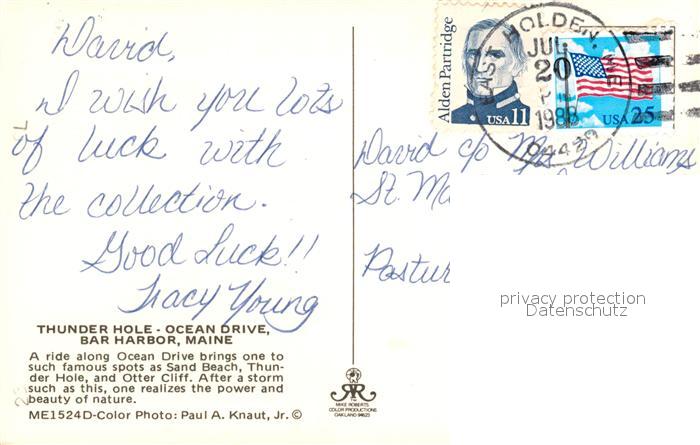 David,
I wish you lots
of luck with
the collection.
Good Luck!!
Tracy Young
THUNDER HOLE - OCEAN DRIVE,
BAR HARBOR, MAINE
A ride along Ocean Drive brings one to
such famous spots as Sand Beach, Thun-
der Hole, and Otter Cliff. After a storm
such as this, one realizes the power and
beauty of nature.
ME1524D-Color Photo: Paul A. Knaut, Jr. ©
MIKE ROBERTS
COLOR PRODUCTIONS
OAKLAND 94623
Alden Partridge
USA 11
USA 25
EAST HOLDEN, ME
JUL
20
PM
1988
04429
David c/o Mrs. Williams
St. Ma
Pastur
privacy protection
Datenschutz